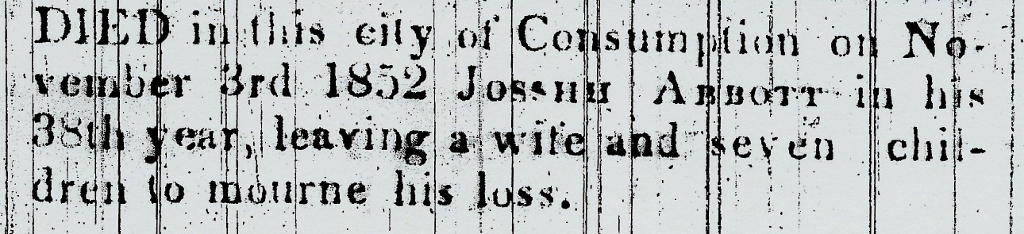 DIED in this city of Consumption on No-
vember 3rd 1852 JOSSHH ABBOTT in his
38th year, leaving a wife and seven chil-
dren to mourne his loss.